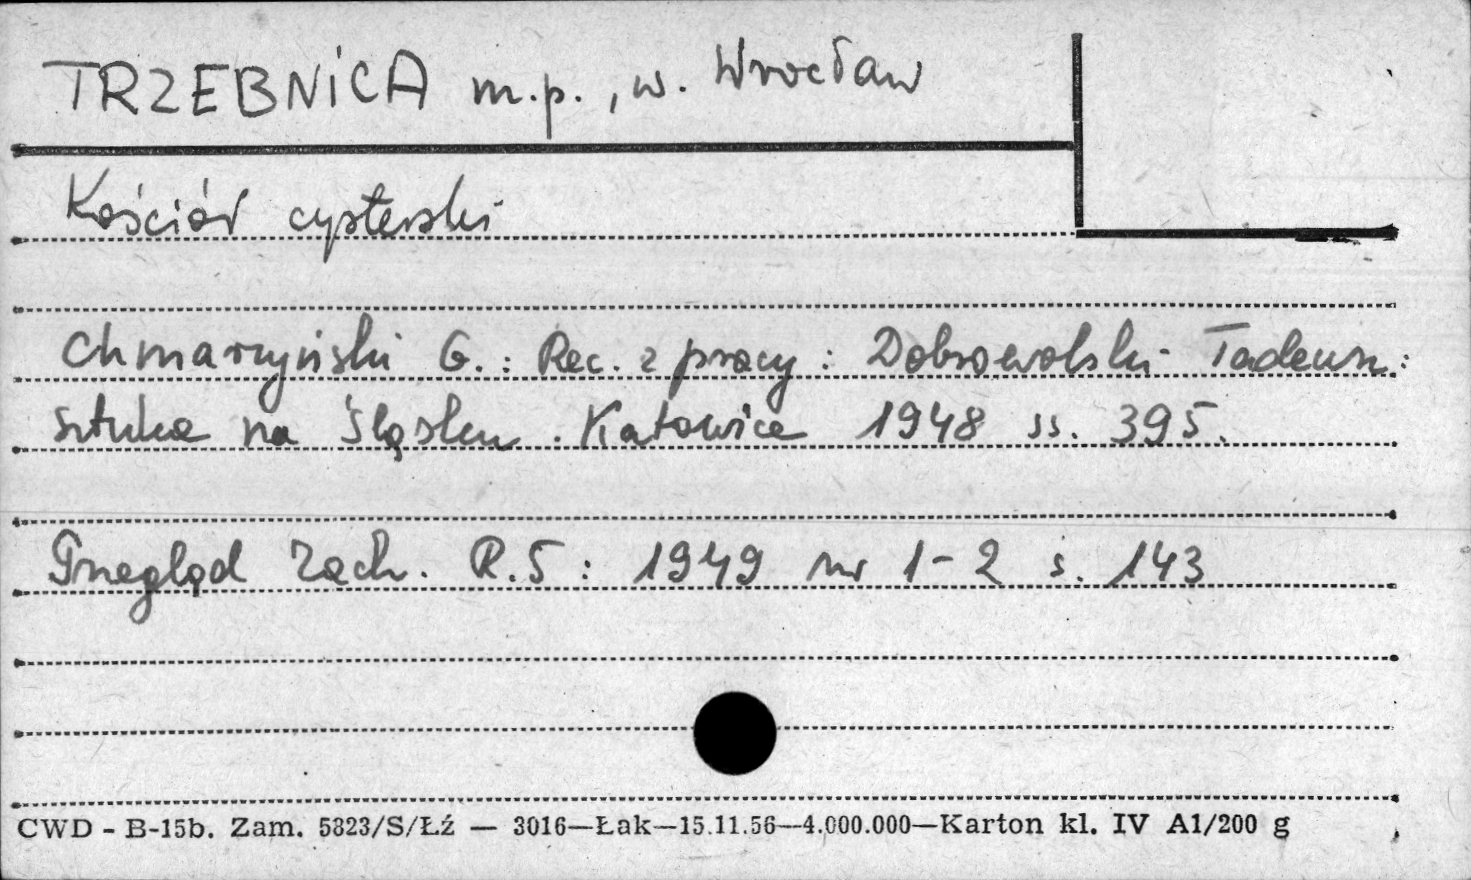 TRZEBNICA m.p., w. Wrocław
Kościół cysterski
Chmarzyński G.: Rec. z pracy: Dobrowolski Tadeusz:
Sztuka na Śląsku. Katowice 1948 ss. 395.
Przegląd Zach. R.5: 1949 nr 1-2 s. 143
CWD - B-15b. Zam. 5323/S/Łź — 3016—Łak—15.11.56—4.000.000—Karton kl. IV A1/200 g